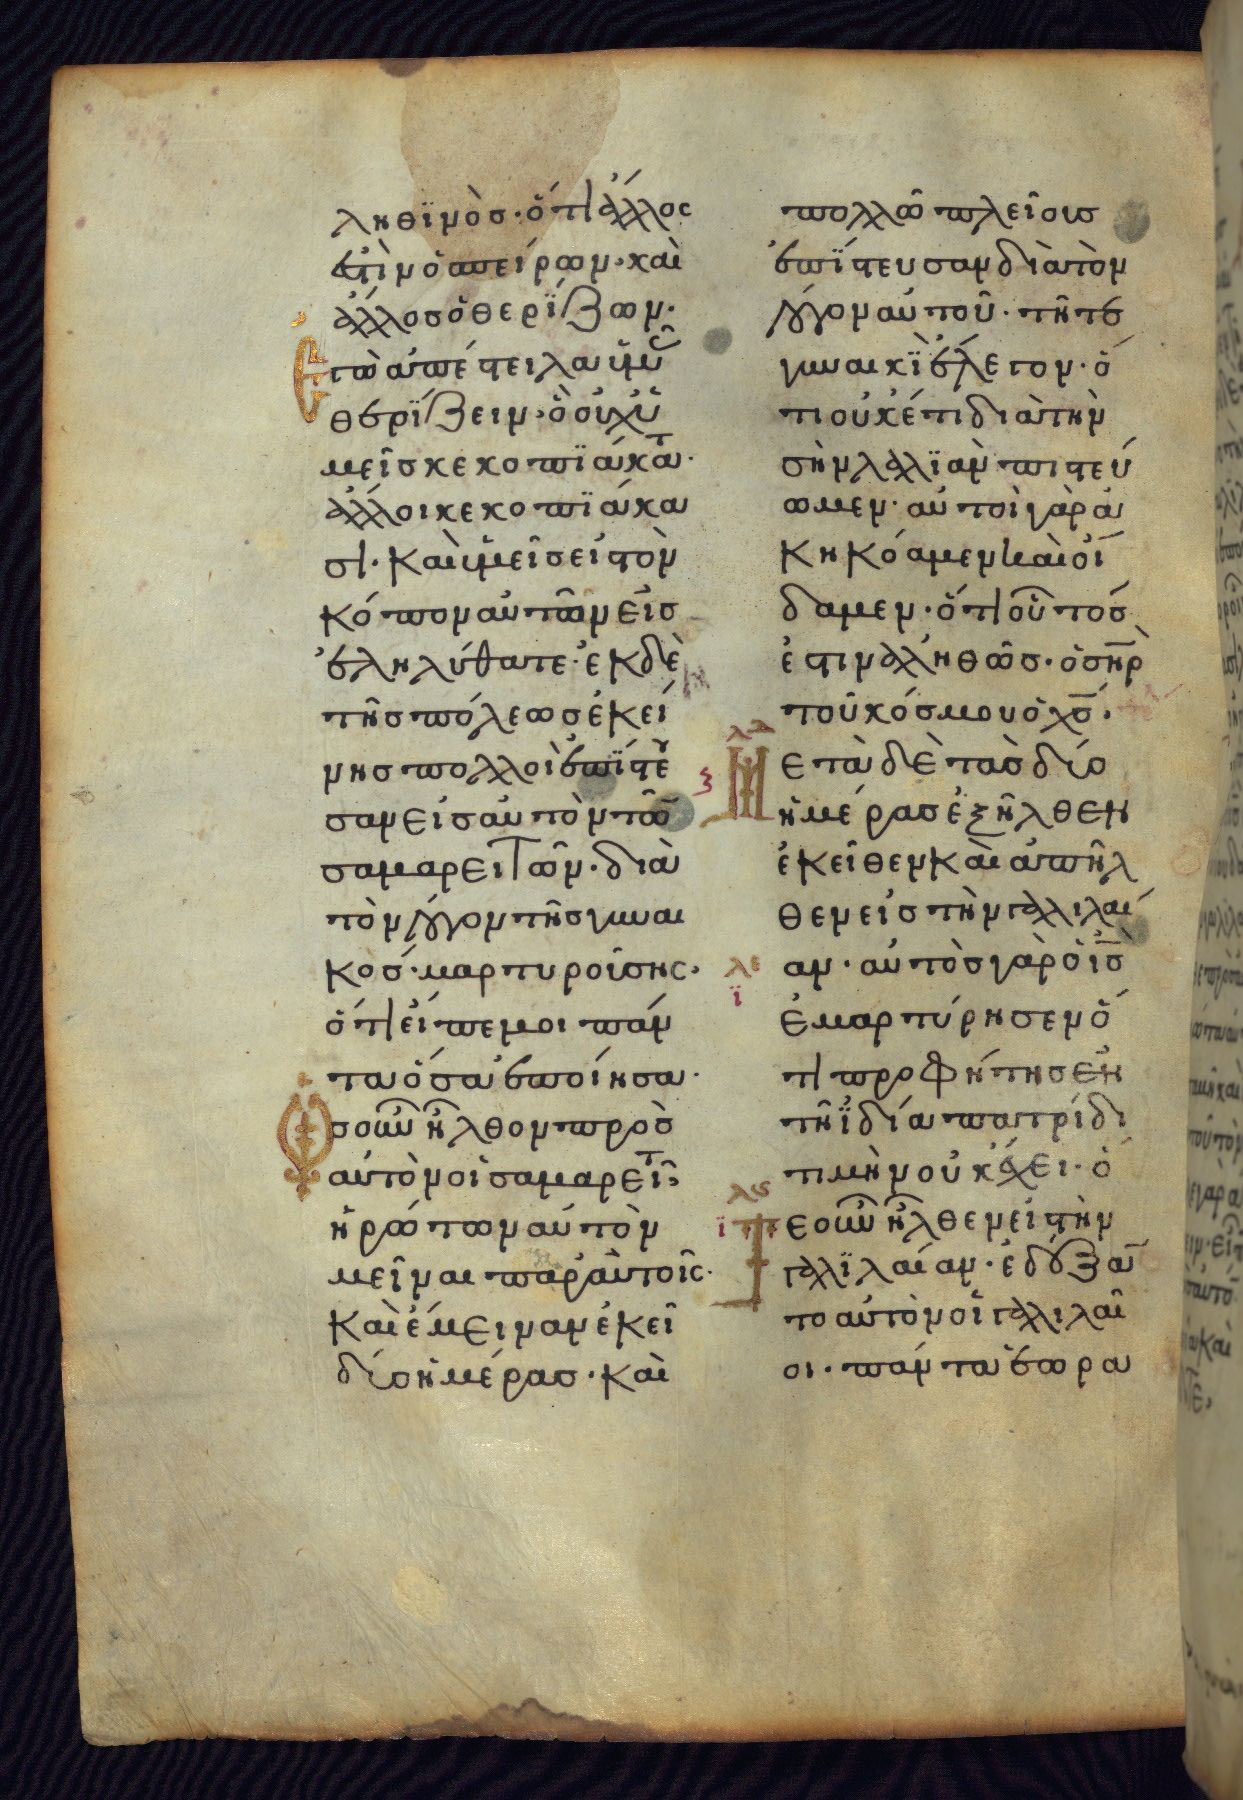 ληθϊνὸσ· ὅτι ἄλλος
ἐστὶν ὁ σπείρων· καὶ
ἄλλοσ ὁ θερίζων·
Ἐγὼ ἀπέστειλα ὑμᾶς
θερίζειν· ὃ οὐχ ὑ
μεῖσ κεκοπϊάκατε·
ἄλλοι κεκοπϊάκα
σι· καὶ ὑμεῖσ εἰσ τὸν
κόπον αὐτῶν εἰσ
εληλύθατε· ἐκ δὲ
τῆσ πόλεωσ ἐκεί
νησ πολλοὶ ἐπίστευ
σαν εἰσ αὐτὸν τῶν
σαμαρειτῶν· διὰ
τὸν λόγον τῆσ γυναι
κόσ· μαρτυρούσης·
ὅτι εἶπέ μοι πάν
τα ὅσα ἐποίησα·
Ὡσ οὖν ἦλθον πρὸσ
αὐτὸν οἱ σαμαρεῖται
ἠρώτων αὐτὸν
μεῖναι παρ' αὐτοῖς·
καὶ ἔμεινεν ἐκεῖ
δύο ἡμέρασ· καὶ
πολλῶ πλείουσ
ἐπίστευσαν διὰ τὸν
λόγον αὐτοῦ· τῆ τε
γυναικὶ ἔλεγον· ὅ
τι οὐκέτι διὰ τὴν
σὴν λαλϊὰν πιστεύ
ομεν· αὐτοὶ γὰρ ἀ
κηκόαμεν καὶ οἴ
δαμεν· ὅτι οὗτόσ
ἐστιν ἀληθῶσ· ὁ σηρ
τοῦ κόσμου ὁ χσ·
λδ
Μετὰ δὲ τὰσ δύο
ἡμέρασ ἐξῆλθεν
ἐκεῖθεν καὶ ἀπῆλ
θεν εἰσ τὴν γαλιλαί
λε
ϊ
αν· αὐτὸσ γὰρ ὁ ισ
ἐμαρτύρησεν ὅ
τι προφήτησ ἐν
τῆ ἰδία πατρίδι
τιμὴν οὐκ ἔχει· ὅ
λς
ϊ
Τε οὖν ἦλθεν εἰσ τὴν
γαλϊλαίαν· ἐδέξαν
το αὐτὸν οἱ γαλιλαῖ
οι· πάντα ἑωρα